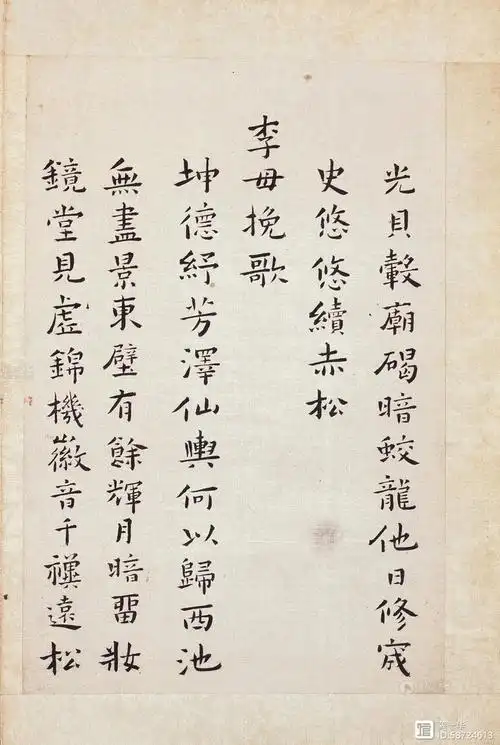 光貝轂廟碣暗蛟龍他日修宬
史悠悠續赤松
李母挽歌
坤德紓芳澤仙輿何以歸西池
無盡景東壁有餘輝月暗畱妝
鏡堂見虛錦機徽音千禩遠松
ID:58724613